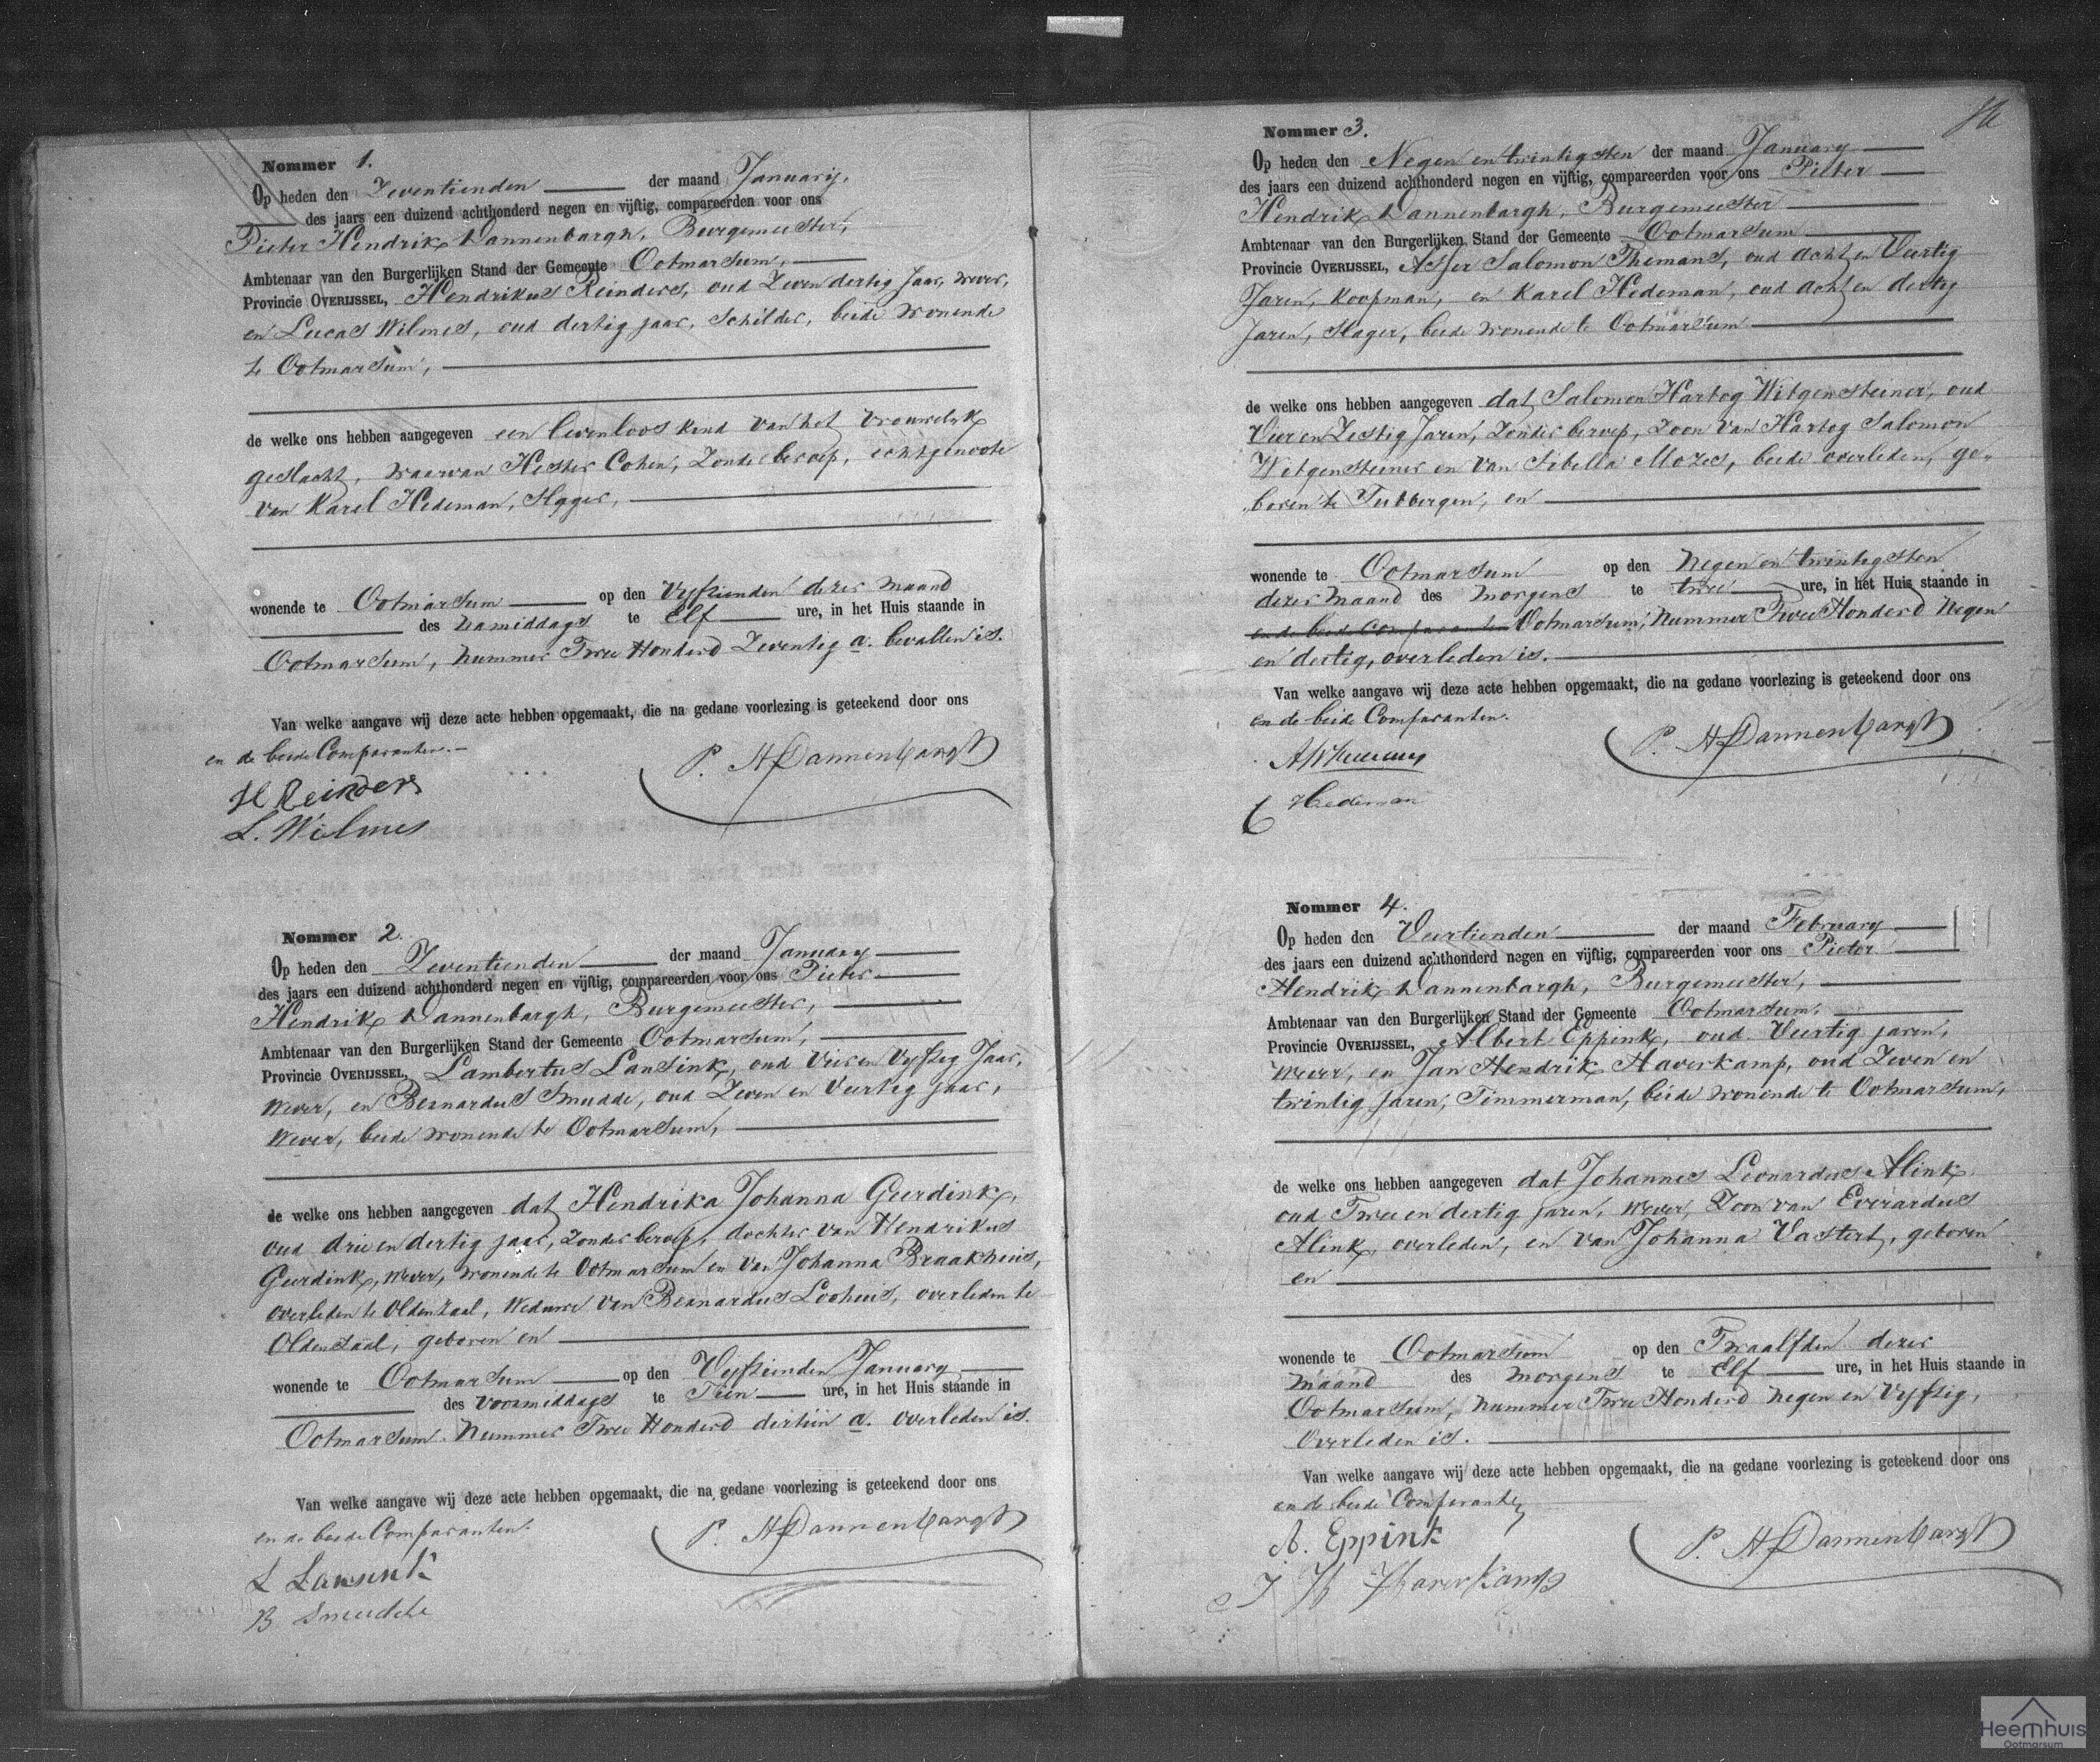 Nommer 1.
Op heden den Zeventienden der maand January,
des jaars een duizend achthonderd negen en vijftig, compareerden voor ons
Pieter Hendrik Dannenbargh, Burgemeester,
Ambtenaar van den Burgerlijken Stand der Gemeente Ootmarsum,
Provincie OVERIJSSEL, Hendrikus Reinders, oud Zeven dertig Jaar, wever,
en Lucas Wilmes, oud dertig jaar, Schilder, beide wonende
te Ootmarsum,
de welke ons hebben aangegeven een levenloos kind van het vrouwelyk
geslacht, waarvan Hester Cohen, Zonder beroep, echtgenoote
van Karel Hedeman, Slager,
wonende te Ootmarsum op den Vyftienden dezer maand
des namiddags te Elf ure, in het Huis staande in
Ootmarsum, nummer Twee Honderd Zeventig a. bevallen is.
Van welke aangave wij deze acte hebben opgemaakt, die na gedane voorlezing is geteekend door ons
en de beide Comparanten.
P. H Dannenbargh
H Reinders
L. Wilmes
Nommer 2.
Op heden den Zeventienden der maand January
des jaars een duizend achthonderd negen en vijftig, compareerden voor ons Pieter
Hendrik Dannenbargh, Burgemeester,
Ambtenaar van den Burgerlijken Stand der Gemeente Ootmarsum,
Provincie OVERIJSSEL, Lambertus Lansink, oud Vier en Vyftig Jaar,
Wever, en Bernardus Smudde, oud Zeven en Veertig jaar,
Wever, beide wonende te Ootmarsum,
de welke ons hebben aangegeven dat Hendrika Johanna Geerdink,
oud drie en dertig jaar, Zonder beroep, dochter van Hendrikus
Geerdink, wever, wonende te Ootmarsum en van Johanna Braakhuis,
overleden te Oldenzaal, Weduwe van Bernardus Loohuis, overleden te
Oldenzaal, geboren en
wonende te Ootmarsum op den Vyftienden January
des voormiddags te Tien ure, in het Huis staande in
Ootmarsum. Nummer Twee Honderd dertien a. overleden is.
Van welke aangave wij deze acte hebben opgemaakt, die na gedane voorlezing is geteekend door ons
en de beide Comparanten.
P. H Dannenbargh
L Lansink
B Smudde
Nommer 3.
Op heden den Negen en twintigsten der maand January
des jaars een duizend achthonderd negen en vijftig, compareerden voor ons Pieter
Hendrik Dannenbargh, Burgemeester
Ambtenaar van den Burgerlijken Stand der Gemeente Ootmarsum
Provincie OVERIJSSEL, Asser Salomon Themans, oud acht en Veertig
Jaren, Koopman, en Karel Hedeman, oud acht en dertig
Jaren, Slager, beide wonende te Ootmarsum
de welke ons hebben aangegeven dat Salomon Hartog Witgensteiner, oud
Vier en Zestig Jaren, Zonder beroep, Zoon van Hartog Salomon
Witgensteiner en van Sibella Mozes, beide overleden, ge-
boren te Tubbergen, en
wonende te Ootmarsum op den Negen en twintigsten
dezer maand des morgens te twee ure, in het Huis staande in
en de beide Comparanten Ootmarsum, Nummer Twee Honderd Negen
en dertig, overleden is.
Van welke aangave wij deze acte hebben opgemaakt, die na gedane voorlezing is geteekend door ons
en de beide Comparanten.
P. H Dannenbargh
Hedeman
Nommer 4.
Op heden den Veertienden der maand February
des jaars een duizend achthonderd negen en vijftig, compareerden voor ons Pieter
Hendrik Dannenbargh, Burgemeester,
Ambtenaar van den Burgerlijken Stand der Gemeente Ootmarsum,
Provincie OVERIJSSEL, Albert Eppink, oud Veertig jaren,
Wever, en Jan Hendrik Haverkamp, oud Zeven en
twintig jaren, Timmerman, beide wonende te Ootmarsum,
de welke ons hebben aangegeven dat Johannes Leonardus Alink,
oud Twee en dertig jaren, wever, Zoon van Everardus
Alink, overleden, en van Johanna Vastert, geboren
en
wonende te Ootmarsum op den Twaalfden dezer
maand des morgens te Elf ure, in het Huis staande in
Ootmarsum, nummer Twee Honderd negen en Vyftig,
overleden is.
Van welke aangave wij deze acte hebben opgemaakt, die na gedane voorlezing is geteekend door ons
en de beide Comparanten
P. H Dannenbargh
A. Eppink
J H Haverkamp
Heemhuis
Ootmarsum